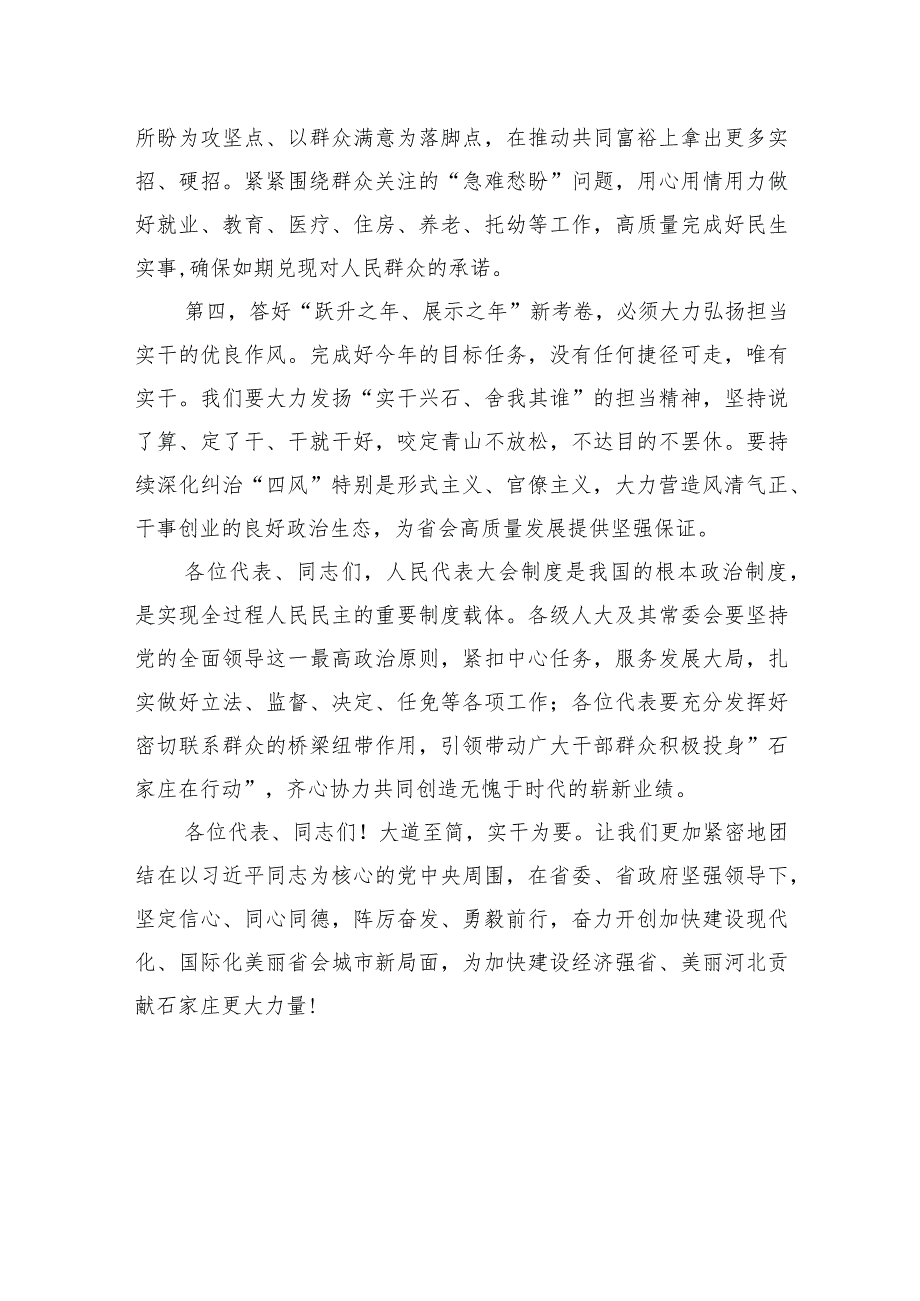 所盼为攻坚点、以群众满意为落脚点，在推动共同富裕上拿出更多实
招、硬招。紧紧围绕群众关注的“急难愁盼”问题，用心用情用力做
好就业、教育、医疗、住房、养老、托幼等工作，高质量完成好民生
实事,确保如期兑现对人民群众的承诺。
第四，答好“跃升之年、展示之年”新考卷，必须大力弘扬担当
实干的优良作风。完成好今年的目标任务，没有任何捷径可走，唯有
实干。我们要大力发扬“实干兴石、舍我其谁”的担当精神，坚持说
了算、定了干、干就干好，咬定青山不放松，不达目的不罢休。要持
续深化纠治“四风”特别是形式主义、官僚主义，大力营造风清气正、
干事创业的良好政治生态，为省会高质量发展提供坚强保证。
各位代表、同志们，人民代表大会制度是我国的根本政治制度，
是实现全过程人民民主的重要制度载体。各级人大及其常委会要坚持
党的全面领导这一最高政治原则，紧扣中心任务，服务发展大局，扎
实做好立法、监督、决定、任免等各项工作；各位代表要充分发挥好
密切联系群众的桥梁纽带作用，引领带动广大干部群众积极投身”石
家庄在行动”，齐心协力共同创造无愧于时代的崭新业绩。
各位代表、同志们！大道至简，实干为要。让我们更加紧密地团
结在以习近平同志为核心的党中央周围，在省委、省政府坚强领导下，
坚定信心、同心同德，阵厉奋发、勇毅前行，奋力开创加快建设现代
化、国际化美丽省会城市新局面，为加快建设经济强省、美丽河北贡
献石家庄更大力量!